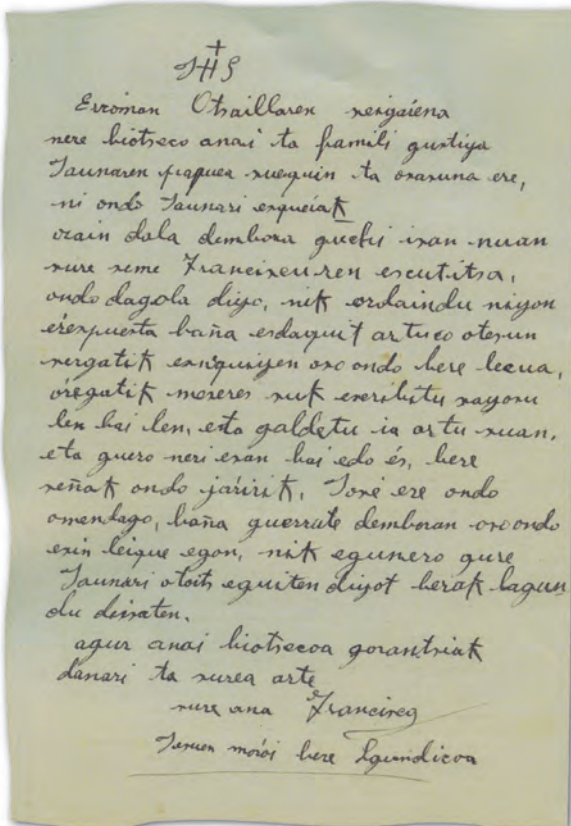 JHS
Erroman Otsaillaren xeigaiena
nere biotseco anai ta famili guztiya
Jaunaren paquea zuequin ta oxaxuna ere,
ni ondo Jaunari exqueiak
orain dala dembora guchi ixan nuan
zure seme Franciscuren escutitsa,
ondo dagola diyo, nik ordaindu niyon
erexpuesta baña esdaquit artuco otezun
zergatik ezniquiyen oxo ondo bere lecua,
oregatik mexeres zuk exeribitu zayozu
len bai len, eta galdetu ia artu zuan.
eta guero neri exan bai edo és, bere
señak ondo jaririk. José ere ondo
omendago, baña guerrate demboran oxo ondo
exin leique egon, nik egunero gure
Jaunari otoits eguiten diyot berak lagun
du deizaten.
agur anai biotsecoa gorantziak
danari ta zurea arte
zure ana Francisca
Jesuen bere